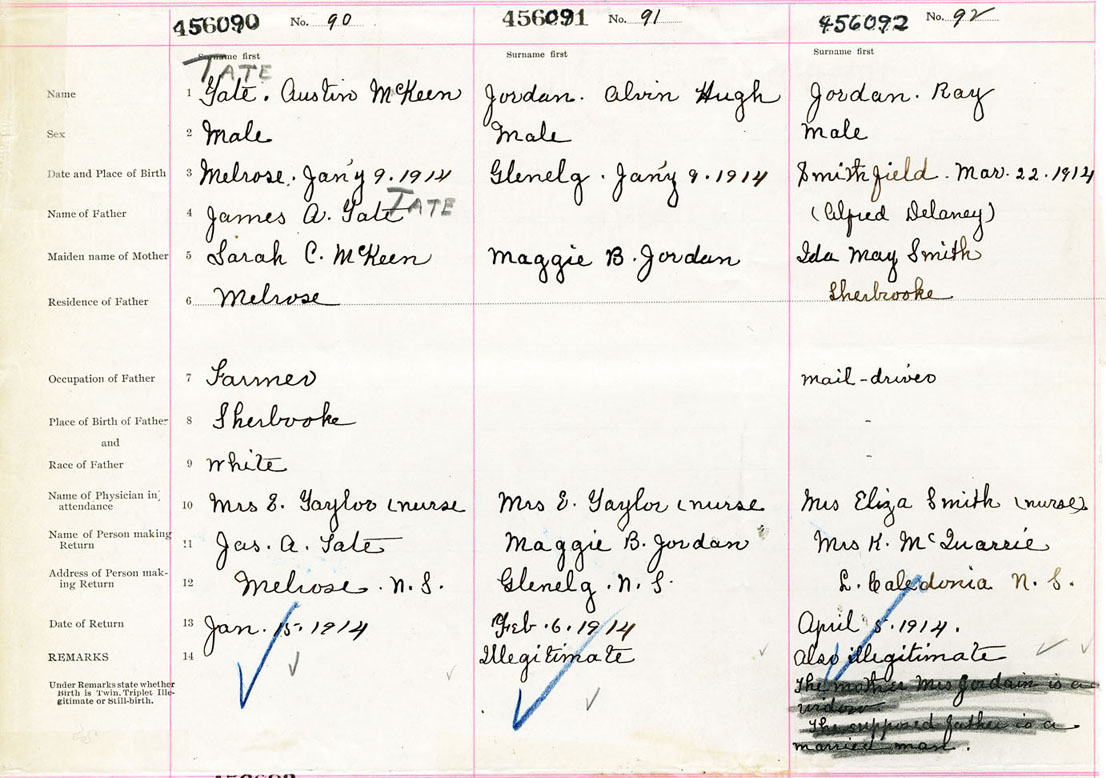 456090 No. 90 456091 No. 91 456092 No. 92
Surname first Surname first Surname first
TATE
Name 1 Tate. Austin McKeen Jordan. Alvin Hugh Jordan. Ray
Sex 2 Male Male Male
Date and Place of Birth 3 Melrose. Jan'y 9. 1914 Glenelg. Jan'y 9. 1914 Smithfield. Mar. 22. 1914
Name of Father 4 James A. Tate TATE (Alfred Delaney)
Maiden name of Mother 5 Sarah C. McKeen Maggie B. Jordan Ida May Smith
Residence of Father 6 Melrose Sherbrooke
Occupation of Father 7 Farmer mail-driver
Place of Birth of Father 8 Sherbrooke -
and
Race of Father 9 White -
Name of Physician in attendance 10 Mrs E. Taylor (nurse Mrs E. Taylor (nurse Mrs Eliza Smith (nurse)
Name of Person making Return 11 Jas. A. Tate Maggie B. Jordan Mrs K. McQuarrie
Address of Person making Return 12 Melrose. N.S. Glenelg. N.S. L. Caledonia N.S.
Date of Return 13 Jan. 15. 1914 Feb. 6. 1914 April 5. 1914.
REMARKS 14 Illegitimate also illegitimate
Under Remarks state whether
Birth is Twin, Triplet Ille-
gitimate or Still-birth.
The mother Mrs Jordain is a
widow
The supposed father is a
married man.